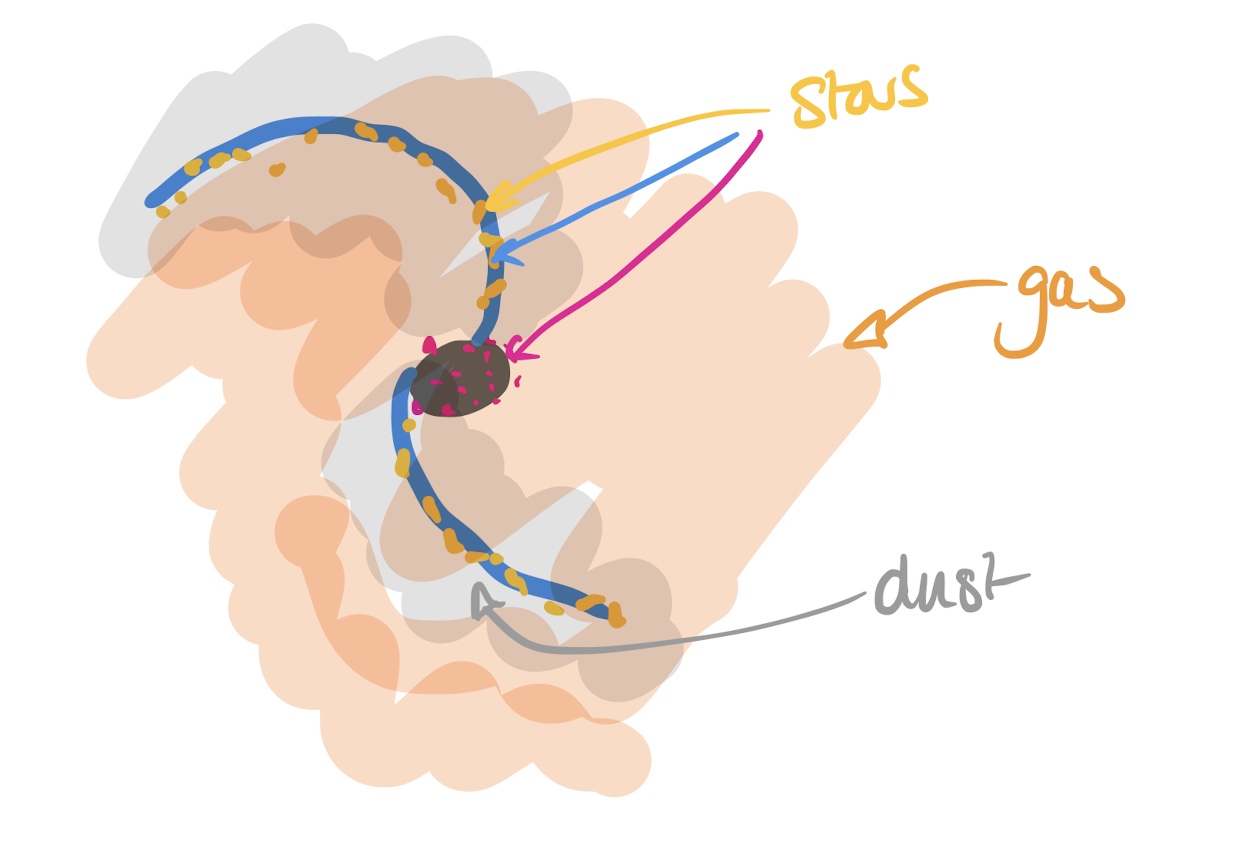 stars
gas
dust